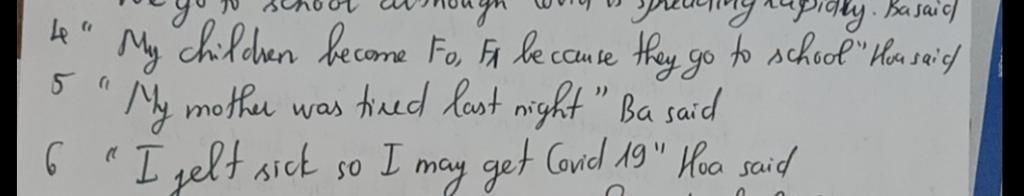 go to school although Covid is spreading rapidly. Ba said
4 " My children become Fo, F1 because they go to school" Hoa said
5 " My mother was tired last night" Ba said
6 " I felt sick so I may get Covid 19" Hoa said